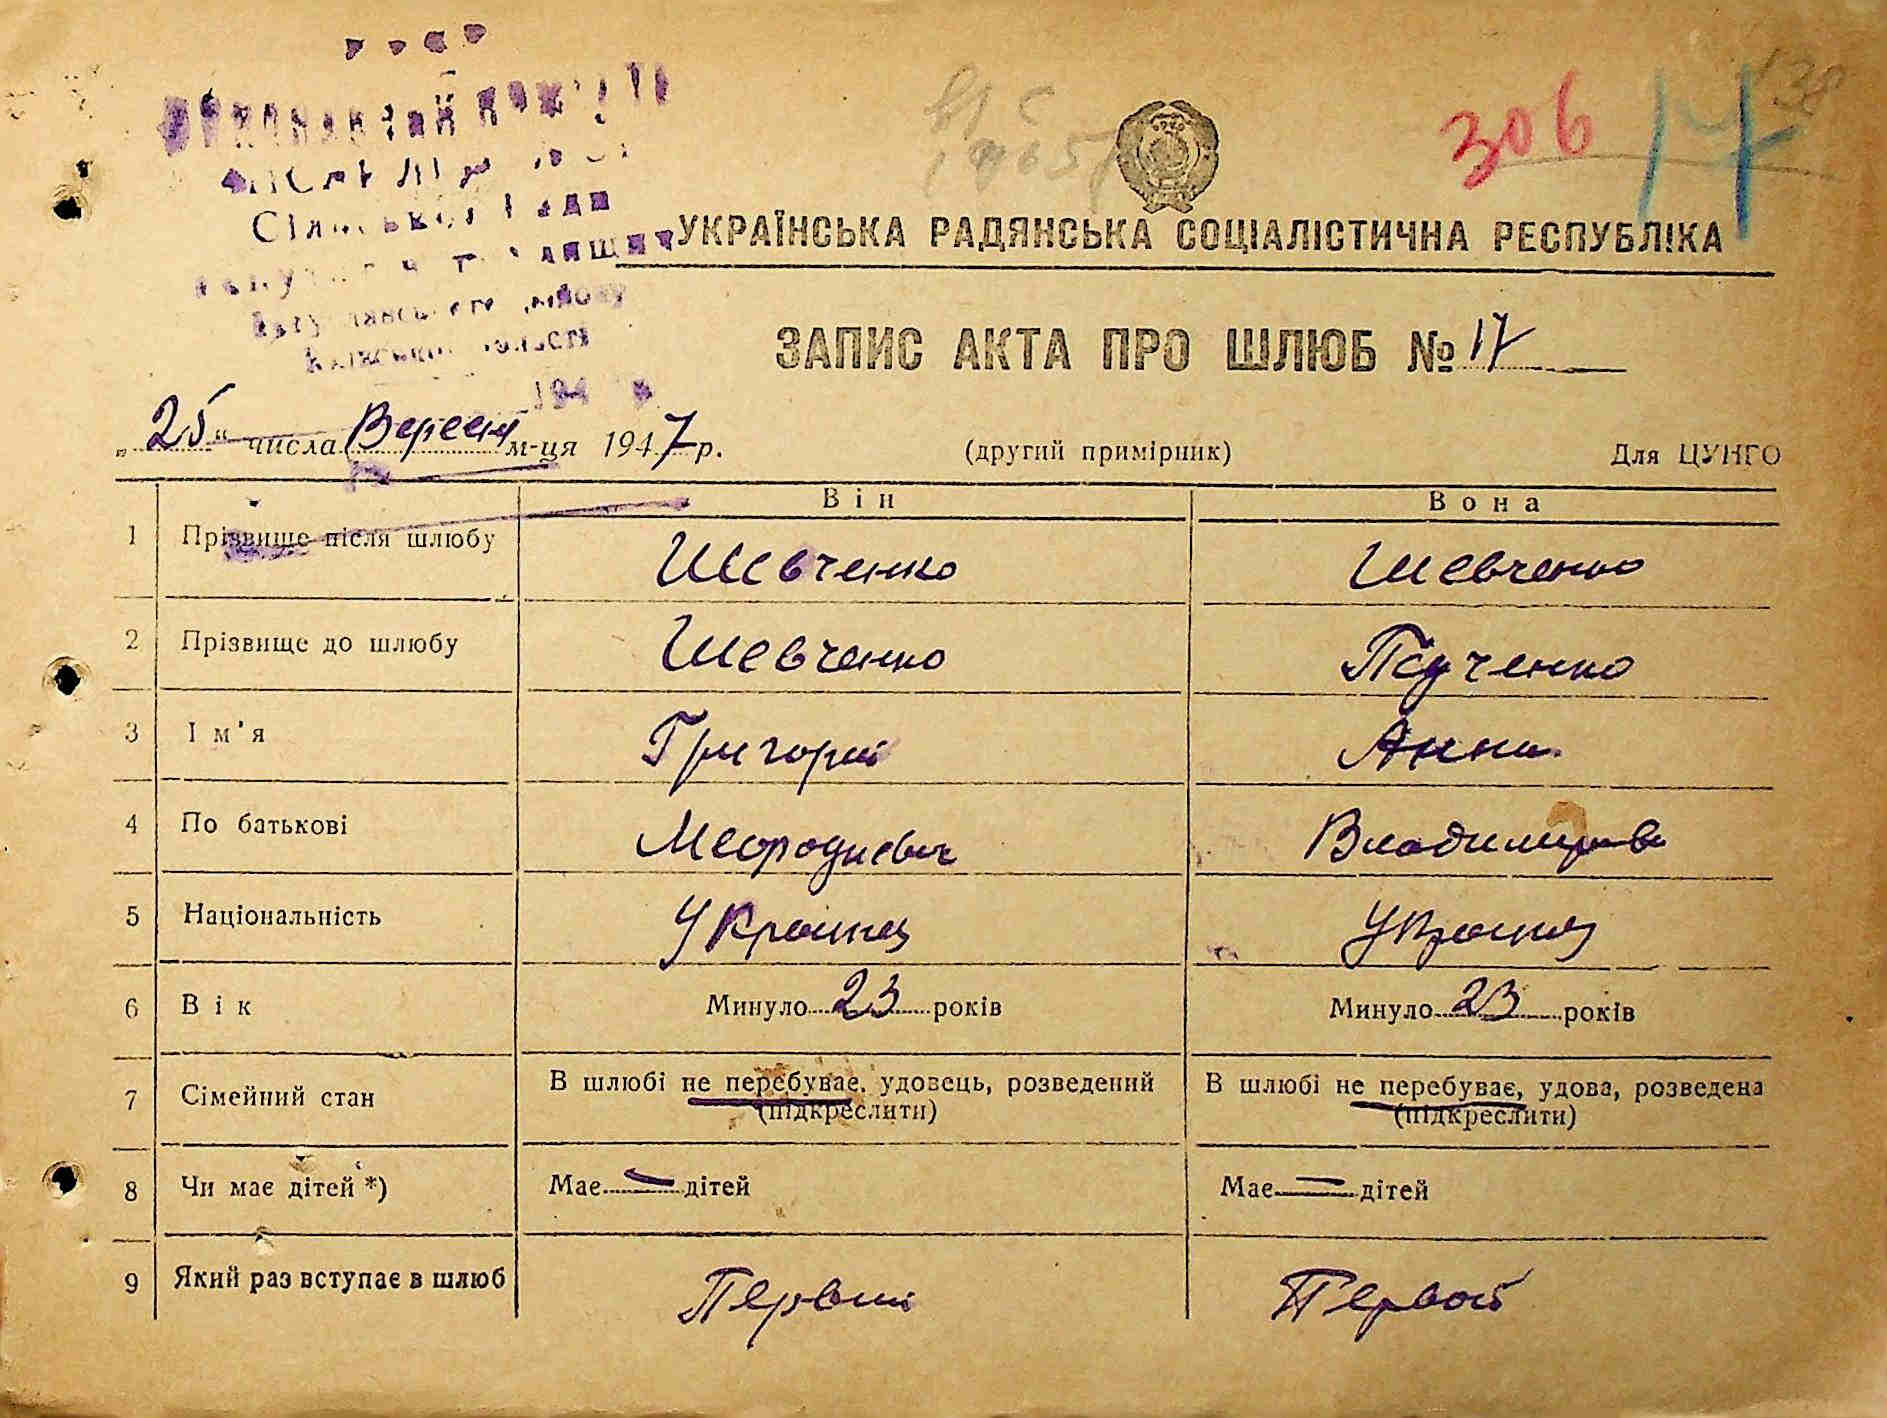 306
17
УКРАЇНСЬКА РАДЯНСЬКА СОЦІАЛІСТИЧНА РЕСПУБЛІКА
ЗАПИС АКТА ПРО ШЛЮБ № 17
„25“ числа Вересня м-ця 1947 р. (другий примірник) Для ЦУНГО
Він Вона
1 Прізвище після шлюбу Шевченко Шевченко
2 Прізвище до шлюбу Шевченко
3 Ім'я Григорий Анна
4 По батькові
5 Національність Украинец Украинец
6 Вік Минуло 23 років Минуло 23 років
7 Сімейний стан В шлюбі не перебуває, удовець, розведений В шлюбі не перебуває, удова, розведена
(підкреслити) (підкреслити)
8 Чи має дітей *) Має — дітей Має — дітей
9 Який раз вступає в шлюб Первый Первой